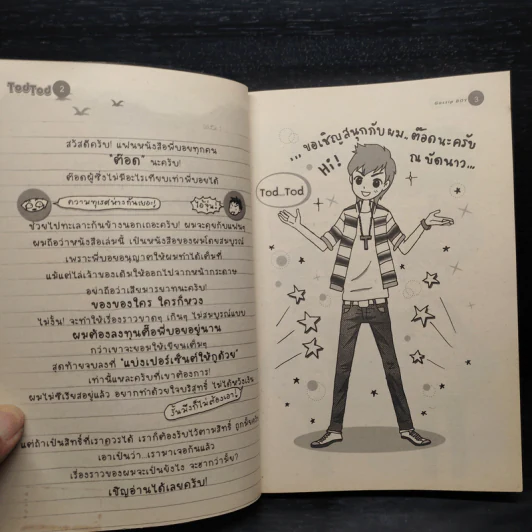 TodTod 2
สวัสดีครับ! แฟนหนังสือพี่บอยทุกคน
"ต๊อด" นะครับ!
ต๊อดผู้ซึ่งไม่มีอะไรเทียบเท่าพี่บอยได้
ช่วยไปทะเลาะกันข้างนอกเถอะครับ! ผมจะคุยกับแฟนๆ
ผมถือว่าหนังสือเล่มนี้ เป็นหนังสือของผมโดยสมบูรณ์
เพราะพี่บอยอนุญาตให้ผมทำได้เต็มที่
แม้แต่ไล่เจ้าของเดิมให้ออกไปจากหน้ากระดาษ
อย่าถือว่าเสียมารยาทนะครับ!
ของของใคร ใครก็หวง
ไม่งั้น! จะทำให้เรื่องราวขาดๆ เกินๆ ไม่สมบูรณ์แบบ
ผมต้องลงทุนตื๊อพี่บอยอยู่นาน
กว่าเขาจะยอมให้เขียนเต็มๆ
สุดท้ายจบลงที่ "แบ่งเปอร์เซ็นต์ให้กูด้วย"
เท่านี้แหละครับที่เขาต้องการ!
ผมไม่ซีเรียสอยู่แล้ว อยากทำด้วยใจบริสุทธิ์ ไม่ได้หวังเงิน
งั้นมึงก็ไม่ต้องเอา!
แต่ถ้าเป็นสิทธิ์ที่เราควรได้ เราก็ต้องรับไว้ตามสิทธิ์
เอาเป็นว่า...เรามาเจอกันแล้ว
เรื่องราวของผมจะเป็นยังไง จะฮากว่ามั้ย?
เชิญอ่านได้เลยครับ!
Gossip Boy 3
...ขอเชิญสนุกกับผม..ต๊อดนะครับ
ณ บัดนาว...
Hi!
Tod...Tod